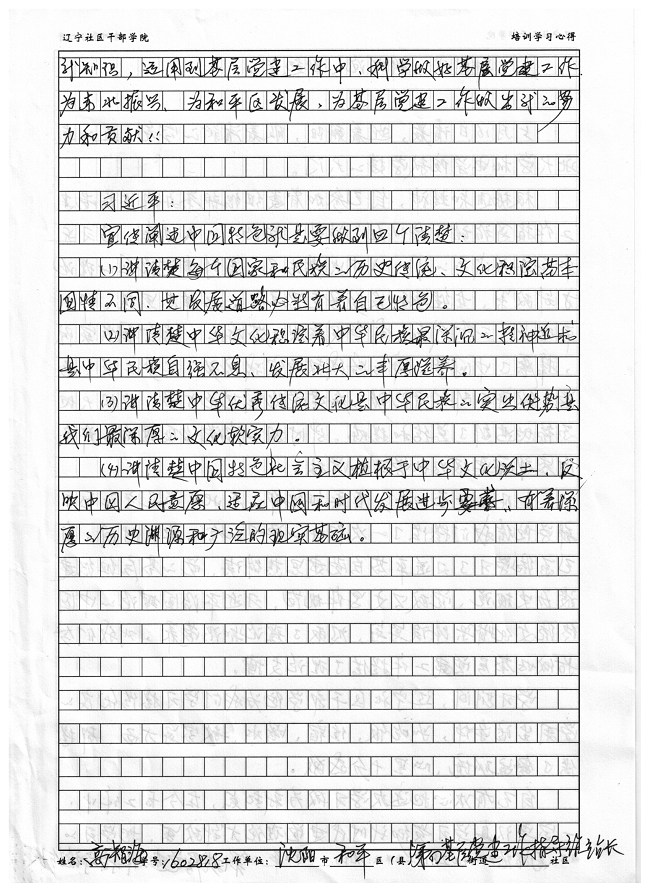 辽宁社区干部学院 培训学习心得
到知识，运用到基层党建工作中，科学做好基层党建工作，
为东北振兴、为和平区发展、为基层党建工作做出我的努
力和贡献！！
习近平：
宣传阐述中国特色就是要做到四个清楚：
(1)讲清楚每个国家和民族的历史传统、文化积淀、基本
国情不同，其发展道路必然有着自己特色。
(2)讲清楚中华文化积淀着中华民族最深沉的精神追求，
是中华民族自强不息、发展壮大的丰厚滋养。
(3)讲清楚中华优秀传统文化是中华民族的突出优势，是
我们最深厚的文化软实力。
(4)讲清楚中国特色社会主义植根于中华文化沃土、反
映中国人民意愿、适应中国和时代发展进步要求，有着深
厚的历史渊源和广泛的现实基础。
姓名： 学号：1602418 工作单位： 沈阳 市 和平 区（县） 基层党建工作指导 站长 社区